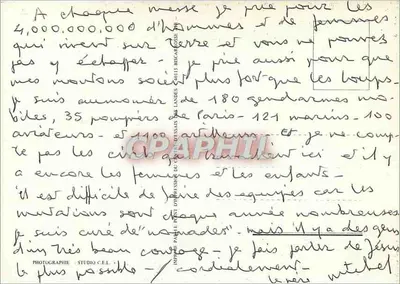 A chaque messe je prie pour les
4,000.000.000 d'hommes et de femmes
qui vivent sur Terre et vous ne pouvez
pas y échapper - je prie aussi pour que
mes moutons soient plus fort que les loups.
je suis aumonier de 180 gendarmes mo-
biles, 35 pompiers de Paris - 121 marins - 100
aviateurs - et 1100 artilleurs et je ne comp-
te pas les civils qui travaillent ici et il y
a encore les femmes et les enfants -
il est difficile de faire des equipes car les
mutations sont chaque année nombreuses
je suis curé de "nomades" - mais il y a des gens
d'un très beau courage - je fais parler de Jésus
le plus possible - / cordialement -
PHOTOGRAPHIE STUDIO C.E.L.
CPAPHIL